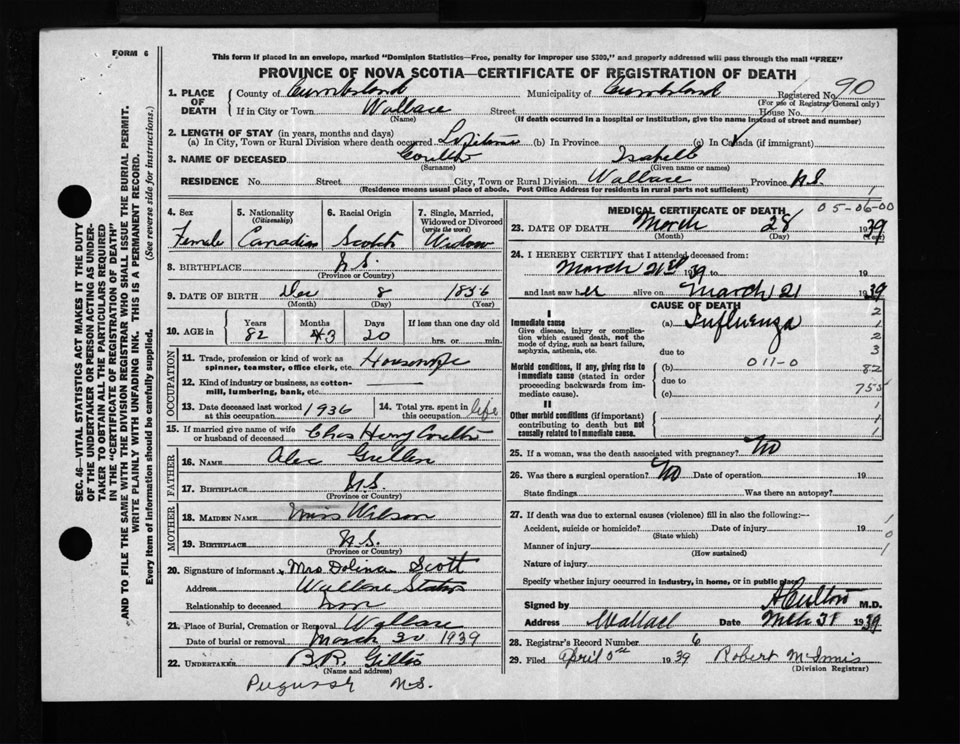 FORM 6
This form if placed in an envelope, marked "Dominion Statistics—Free, penalty for improper use $300," and properly addressed will pass through the mail "FREE"
PROVINCE OF NOVA SCOTIA—CERTIFICATE OF REGISTRATION OF DEATH
90
1. PLACE OF DEATH County of Cumberland Municipality of Cumberland Registered No.
(For use of Registrar General only)
If in City or Town Wallace Street House No.
(Name) (If death occurred in a hospital or institution, give the name instead of street and number)
2. LENGTH OF STAY (in years, months and days)
(a) In City, Town or Rural Division where death occurred Lifetime (b) In Province (c) In Canada (if immigrant)
3. NAME OF DECEASED Isabell
(Surname) (Given name or names)
RESIDENCE No. Street City, Town or Rural Division Wallace Province N.S.
(Residence means usual place of abode. Post Office Address for residents in rural parts not sufficient)
4. Sex Female
5. Nationality (Citizenship) Canadian
6. Racial Origin Scotch
7. Single, Married, Widowed or Divorced (write the word) Widow
8. BIRTHPLACE N.S.
(Province or Country)
9. DATE OF BIRTH Dec 8 1856
(Month) (Day) (Year)
10. AGE in Years Months Days If less than one day old
82 3 20 hrs. or min.
OCCUPATION
11. Trade, profession or kind of work as spinner, teamster, office clerk, etc. Housewife
12. Kind of industry or business, as cotton-mill, lumbering, bank, etc.
13. Date deceased last worked at this occupation 1936
14. Total yrs. spent in this occupation life
15. If married give name of wife or husband of deceased Chas Henry
FATHER
16. NAME Alex
17. BIRTHPLACE N.S.
(Province or Country)
MOTHER
18. MAIDEN NAME Miss Wilson
19. BIRTHPLACE N.S.
(Province or Country)
20. Signature of informant Mrs Dolina Scott
Address Wallace Station
Relationship to deceased
21. Place of Burial, Cremation or Removal Wallace
Date of burial or removal March 30 1939
22. UNDERTAKER B.R.
(Name and address)
N.S.
05-06-00
MEDICAL CERTIFICATE OF DEATH
23. DATE OF DEATH March 28 1939
(Month) (Day) (Year)
24. I HEREBY CERTIFY that I attended deceased from:
March 21st 1939 to 19
and last saw her alive on March 21 1939
CAUSE OF DEATH
I
Immediate cause
Give disease, injury or complication which caused death, not the mode of dying, such as heart failure, asphyxia, asthenia, etc.
(a) Influenza
due to
Morbid conditions, if any, giving rise to immediate cause (stated in order proceeding backwards from immediate cause).
(b) 011-0
due to
(c)
II
Other morbid conditions (if important) contributing to death but not causally related to immediate cause.
2
1
2
3
82
755
1
1
1
25. If a woman, was the death associated with pregnancy? No
26. Was there a surgical operation? No Date of operation 19
State findings Was there an autopsy?
27. If death was due to external causes (violence) fill in also the following:—
Accident, suicide or homicide? Date of injury 19
(State which)
Manner of injury
(How sustained)
Nature of injury
Specify whether injury occurred in industry, in home, or in public place
Signed by M.D.
Address Wallace Date Mch 31 1939
28. Registrar's Record Number 6
29. Filed April 5th 1939 Robert McInnis
(Division Registrar)
SEC. 46—VITAL STATISTICS ACT MAKES IT THE DUTY
OF THE UNDERTAKER OR PERSON ACTING AS UNDER-
TAKER TO OBTAIN ALL THE PARTICULARS REQUIRED
IN THE "CERTIFICATE OF REGISTRATION OF DEATH"
AND TO FILE THE SAME WITH THE DIVISION REGISTRAR WHO SHALL ISSUE THE BURIAL PERMIT.
WRITE PLAINLY WITH UNFADING INK. THIS IS A PERMANENT RECORD.
Every item of information should be carefully supplied. (See reverse side for instructions.)